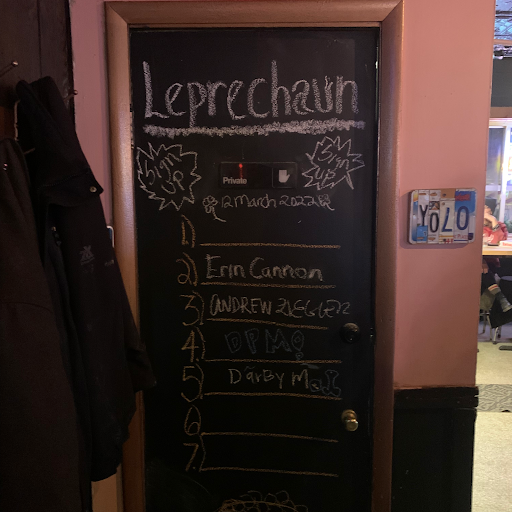 Leprechaun
Sign up
Sign up
Private
12 March 2022
1)
2) Erin Cannon
3) ANDREW ZIEGLER
4)
5) Darby
6)
7.
YOLO